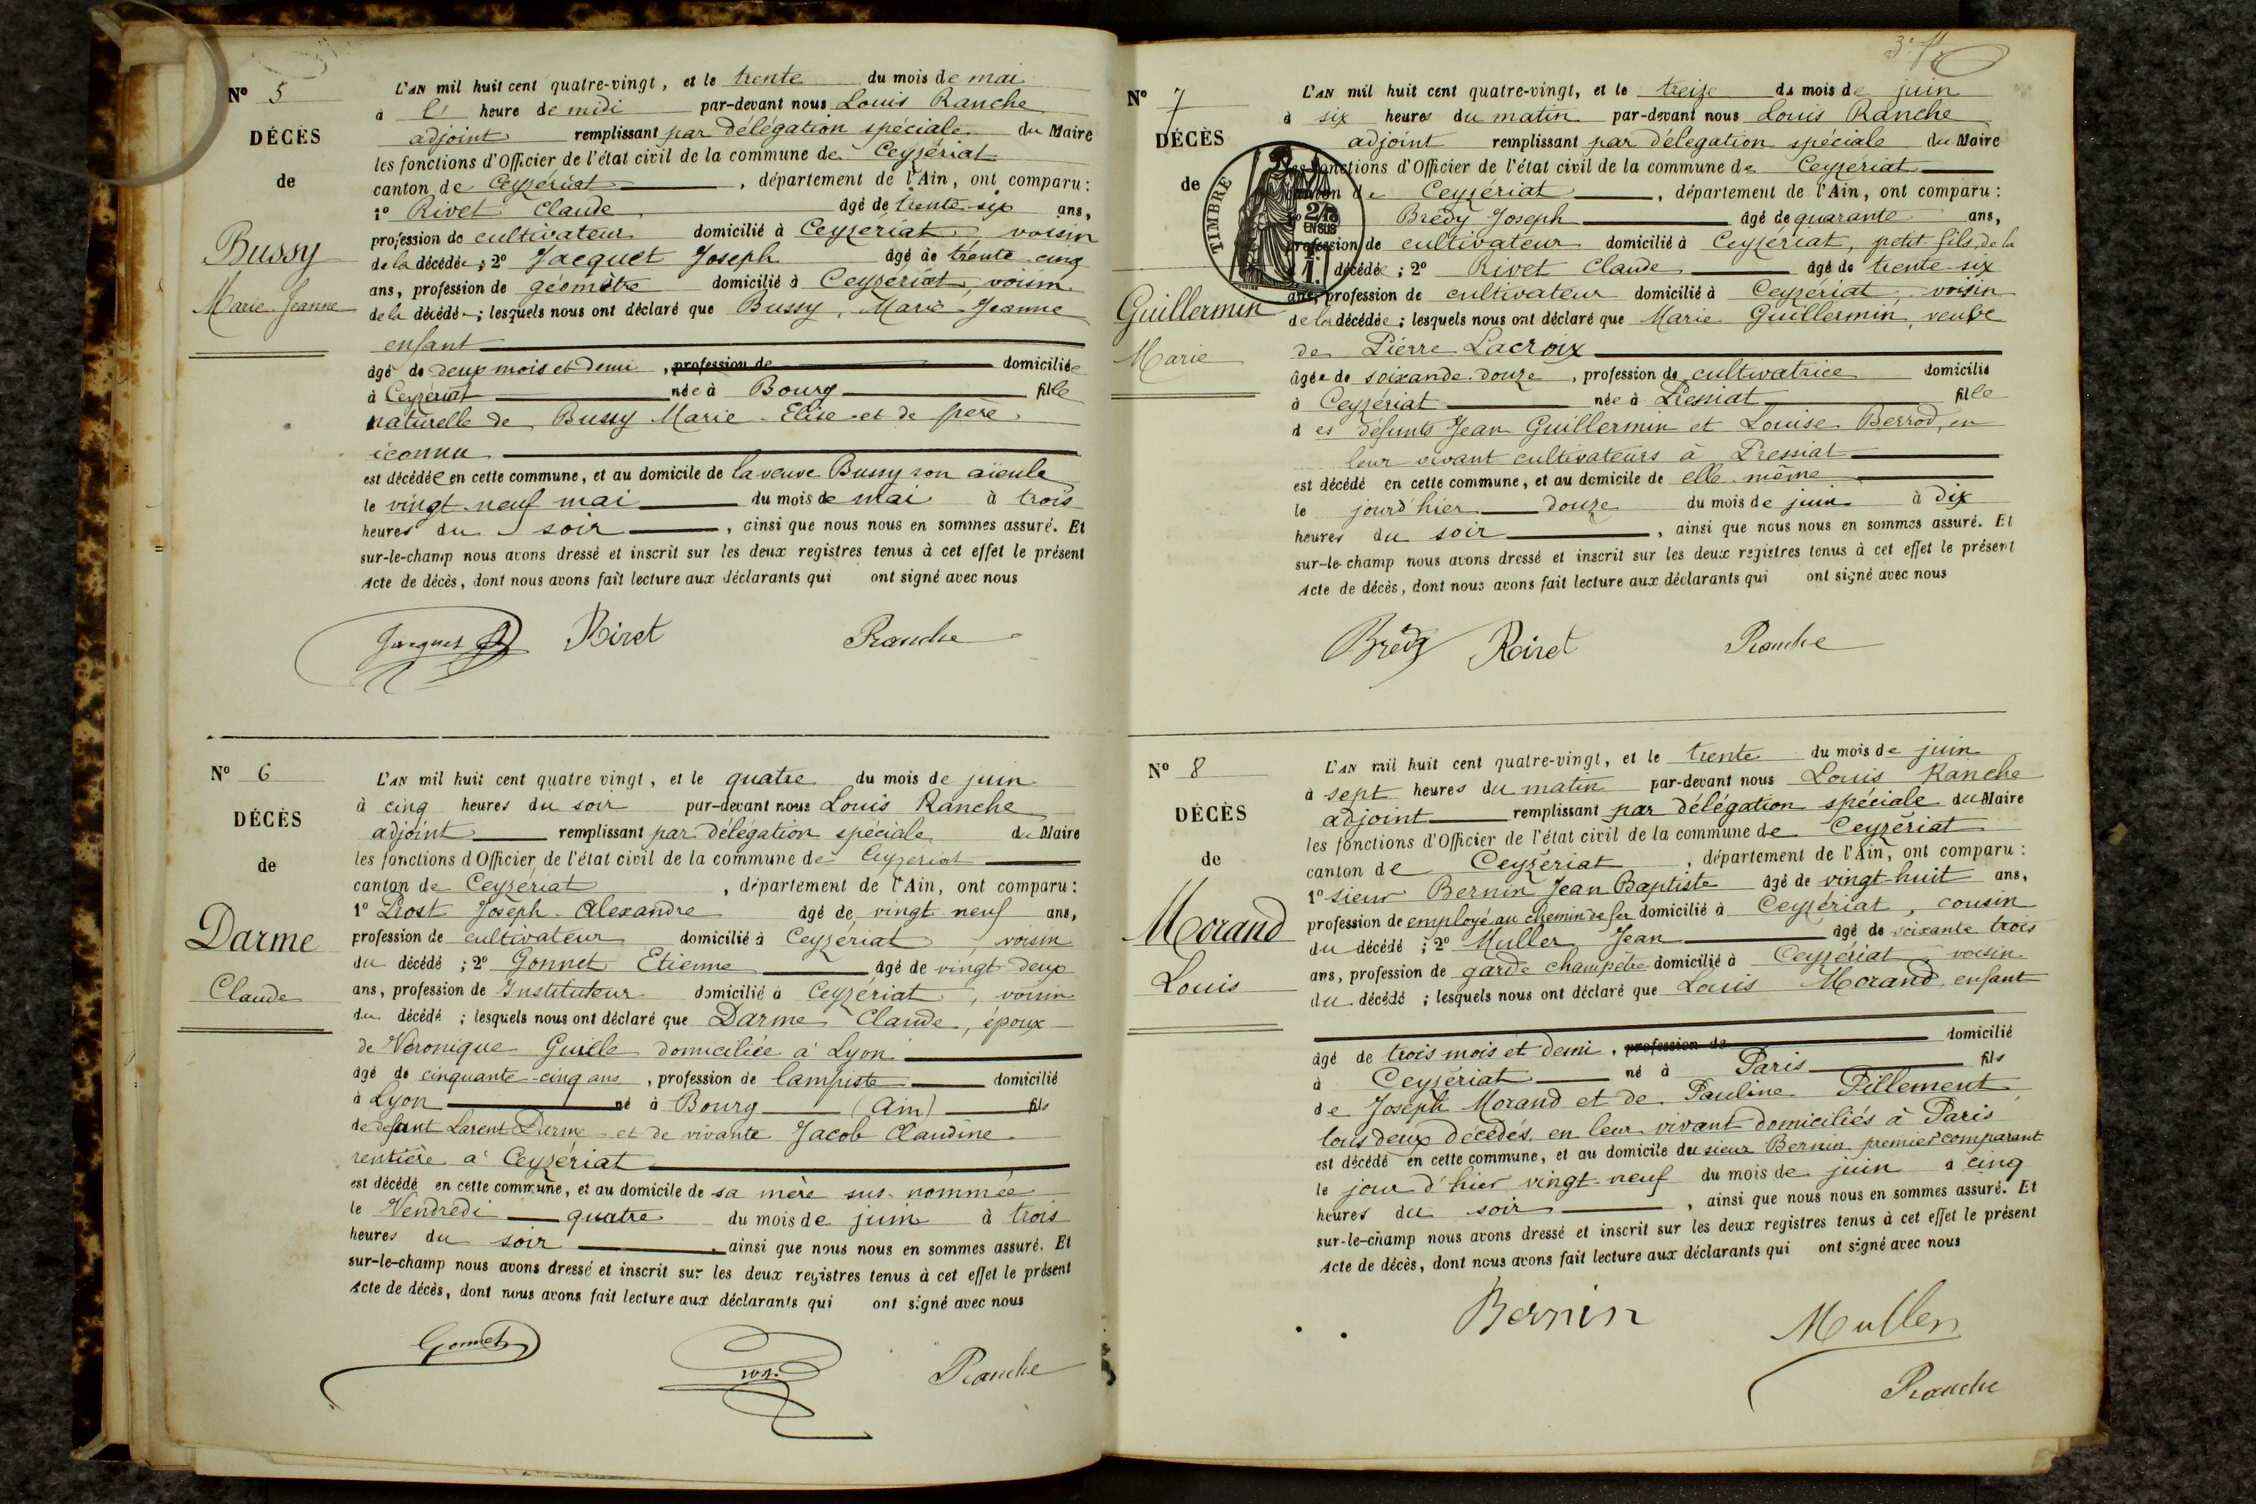 Nº 5
DÉCÈS
de
Bussy
Marie Jeanne
L'AN mil huit cent quatre-vingt, et le trente du mois de mai
à l' heure de midi par-devant nous Louis Ranche
adjoint remplissant par délégation spéciale du Maire
les fonctions d'Officier de l'état civil de la commune de Ceyzériat
canton de Ceyzériat, département de l'Ain, ont comparu :
1º Rivet Claude âgé de trente-six ans,
profession de cultivateur domicilié à Ceyzériat, voisin
de la décédée ; 2º Jacquet Joseph âgé de trente cinq
ans, profession de géomètre domicilié à Ceyzériat, voisin
de la décédée ; lesquels nous ont déclaré que Bussy, Marie-Jeanne
enfant
âgé de deux mois et demi, profession de domiciliée
à Ceyzériat née à Bourg fille
naturelle de Bussy Marie-Elise et de père
iconnu
est décédée en cette commune, et au domicile de la veuve Bussy son aïeule
le vingt-neuf mai du mois de mai à trois
heures du soir, ainsi que nous nous en sommes assuré. Et
sur-le-champ nous avons dressé et inscrit sur les deux registres tenus à cet effet le présent
Acte de décès, dont nous avons fait lecture aux déclarants qui ont signé avec nous
Jacquet Rivet Ranche
Nº 6
DÉCÈS
de
Darme
Claude
L'AN mil huit cent quatre vingt, et le quatre du mois de juin
à cinq heures du soir par-devant nous Louis Ranche
adjoint remplissant par délégation spéciale du Maire
les fonctions d'Officier de l'état civil de la commune de Ceyzériat
canton de Ceyzériat, département de l'Ain, ont comparu :
1º Prost Joseph-Alexandre âgé de vingt neuf ans,
profession de cultivateur domicilié à Ceyzériat, voisin
du décédé ; 2º Gonnet Etienne âgé de vingt-deux
ans, profession de Instituteur domicilié à Ceyzériat, voisin
du décédé ; lesquels nous ont déclaré que Darme Claude, époux
de Véronique Guille domiciliée à Lyon
âgé de cinquante-cinq ans, profession de lampiste domicilié
à Lyon né à Bourg (Ain) fils
de défunt Larent Darme et de vivante Jacob Claudine
rentière à Ceyzériat
est décédé en cette commune, et au domicile de sa mère sus-nommée
le Vendredi quatre du mois de juin à trois
heures du soir, ainsi que nous nous en sommes assuré. Et
sur-le-champ nous avons dressé et inscrit sur les deux registres tenus à cet effet le présent
Acte de décès, dont nous avons fait lecture aux déclarants qui ont signé avec nous
Gonnet Prost Ranche
Nº 7
DÉCÈS
de
TIMBRE
2/10
EN SUS
Guillermin
Marie
L'AN mil huit cent quatre-vingt, et le treize du mois de juin
à six heures du matin par-devant nous Louis Ranche
adjoint remplissant par délégation spéciale du Maire
les fonctions d'Officier de l'état civil de la commune de Ceyzériat
canton de Ceyzériat, département de l'Ain, ont comparu :
Brédy Joseph âgé de quarante ans,
profession de cultivateur domicilié à Ceyzériat, petit-fils de la
décédée ; 2º Rivet Claude âgé de trente-six
ans, profession de cultivateur domicilié à Ceyzériat voisin
de la décédée ; lesquels nous ont déclaré que Marie Guillermin, veuve
de Pierre Lacroix
âgée de soixande-douze, profession de cultivatrice domicilié
à Ceyzériat née à Pressiat fille
des défunts Jean Guillermin et Louise Berrod, en
leur vivant cultivateurs à Pressiat
est décédé en cette commune, et au domicile de elle-même
le jourd'hier douze du mois de juin à dix
heures du soir, ainsi que nous nous en sommes assuré. Et
sur-le-champ nous avons dressé et inscrit sur les deux registres tenus à cet effet le présent
Acte de décès, dont nous avons fait lecture aux déclarants qui ont signé avec nous
Brédy Rivet Ranche
Nº 8
DÉCÈS
de
Morand
Louis
L'AN mil huit cent quatre-vingt, et le trente du mois de juin
à sept heures du matin par-devant nous Louis Ranche
adjoint remplissant par délégation spéciale du Maire
les fonctions d'Officier de l'état civil de la commune de Ceyzériat
canton de Ceyzériat, département de l'Ain, ont comparu :
1º sieur Bernin Jean Baptiste âgé de vingt-huit ans,
profession de employé au chemin de fer domicilié à Ceyzériat, cousin
du décédé ; 2º Muller Jean âgé de soixante trois
ans, profession de garde champêtre domicilié à Ceyzériat voisin
du décédé ; lesquels nous ont déclaré que Louis Morand, enfant
âgé de trois mois et demi, profession de domicilié
à Ceyzériat né à Paris fils
de Joseph Morand et de Pauline Pillement
tous deux décédés en leur vivant domiciliés à Paris
est décédé en cette commune, et au domicile du sieur Bernin premier comparant
le jour d'hier vingt-neuf du mois de juin à cinq
heures du soir, ainsi que nous nous en sommes assuré. Et
sur-le-champ nous avons dressé et inscrit sur les deux registres tenus à cet effet le présent
Acte de décès, dont nous avons fait lecture aux déclarants qui ont signé avec nous
Bernin Muller
Ranche